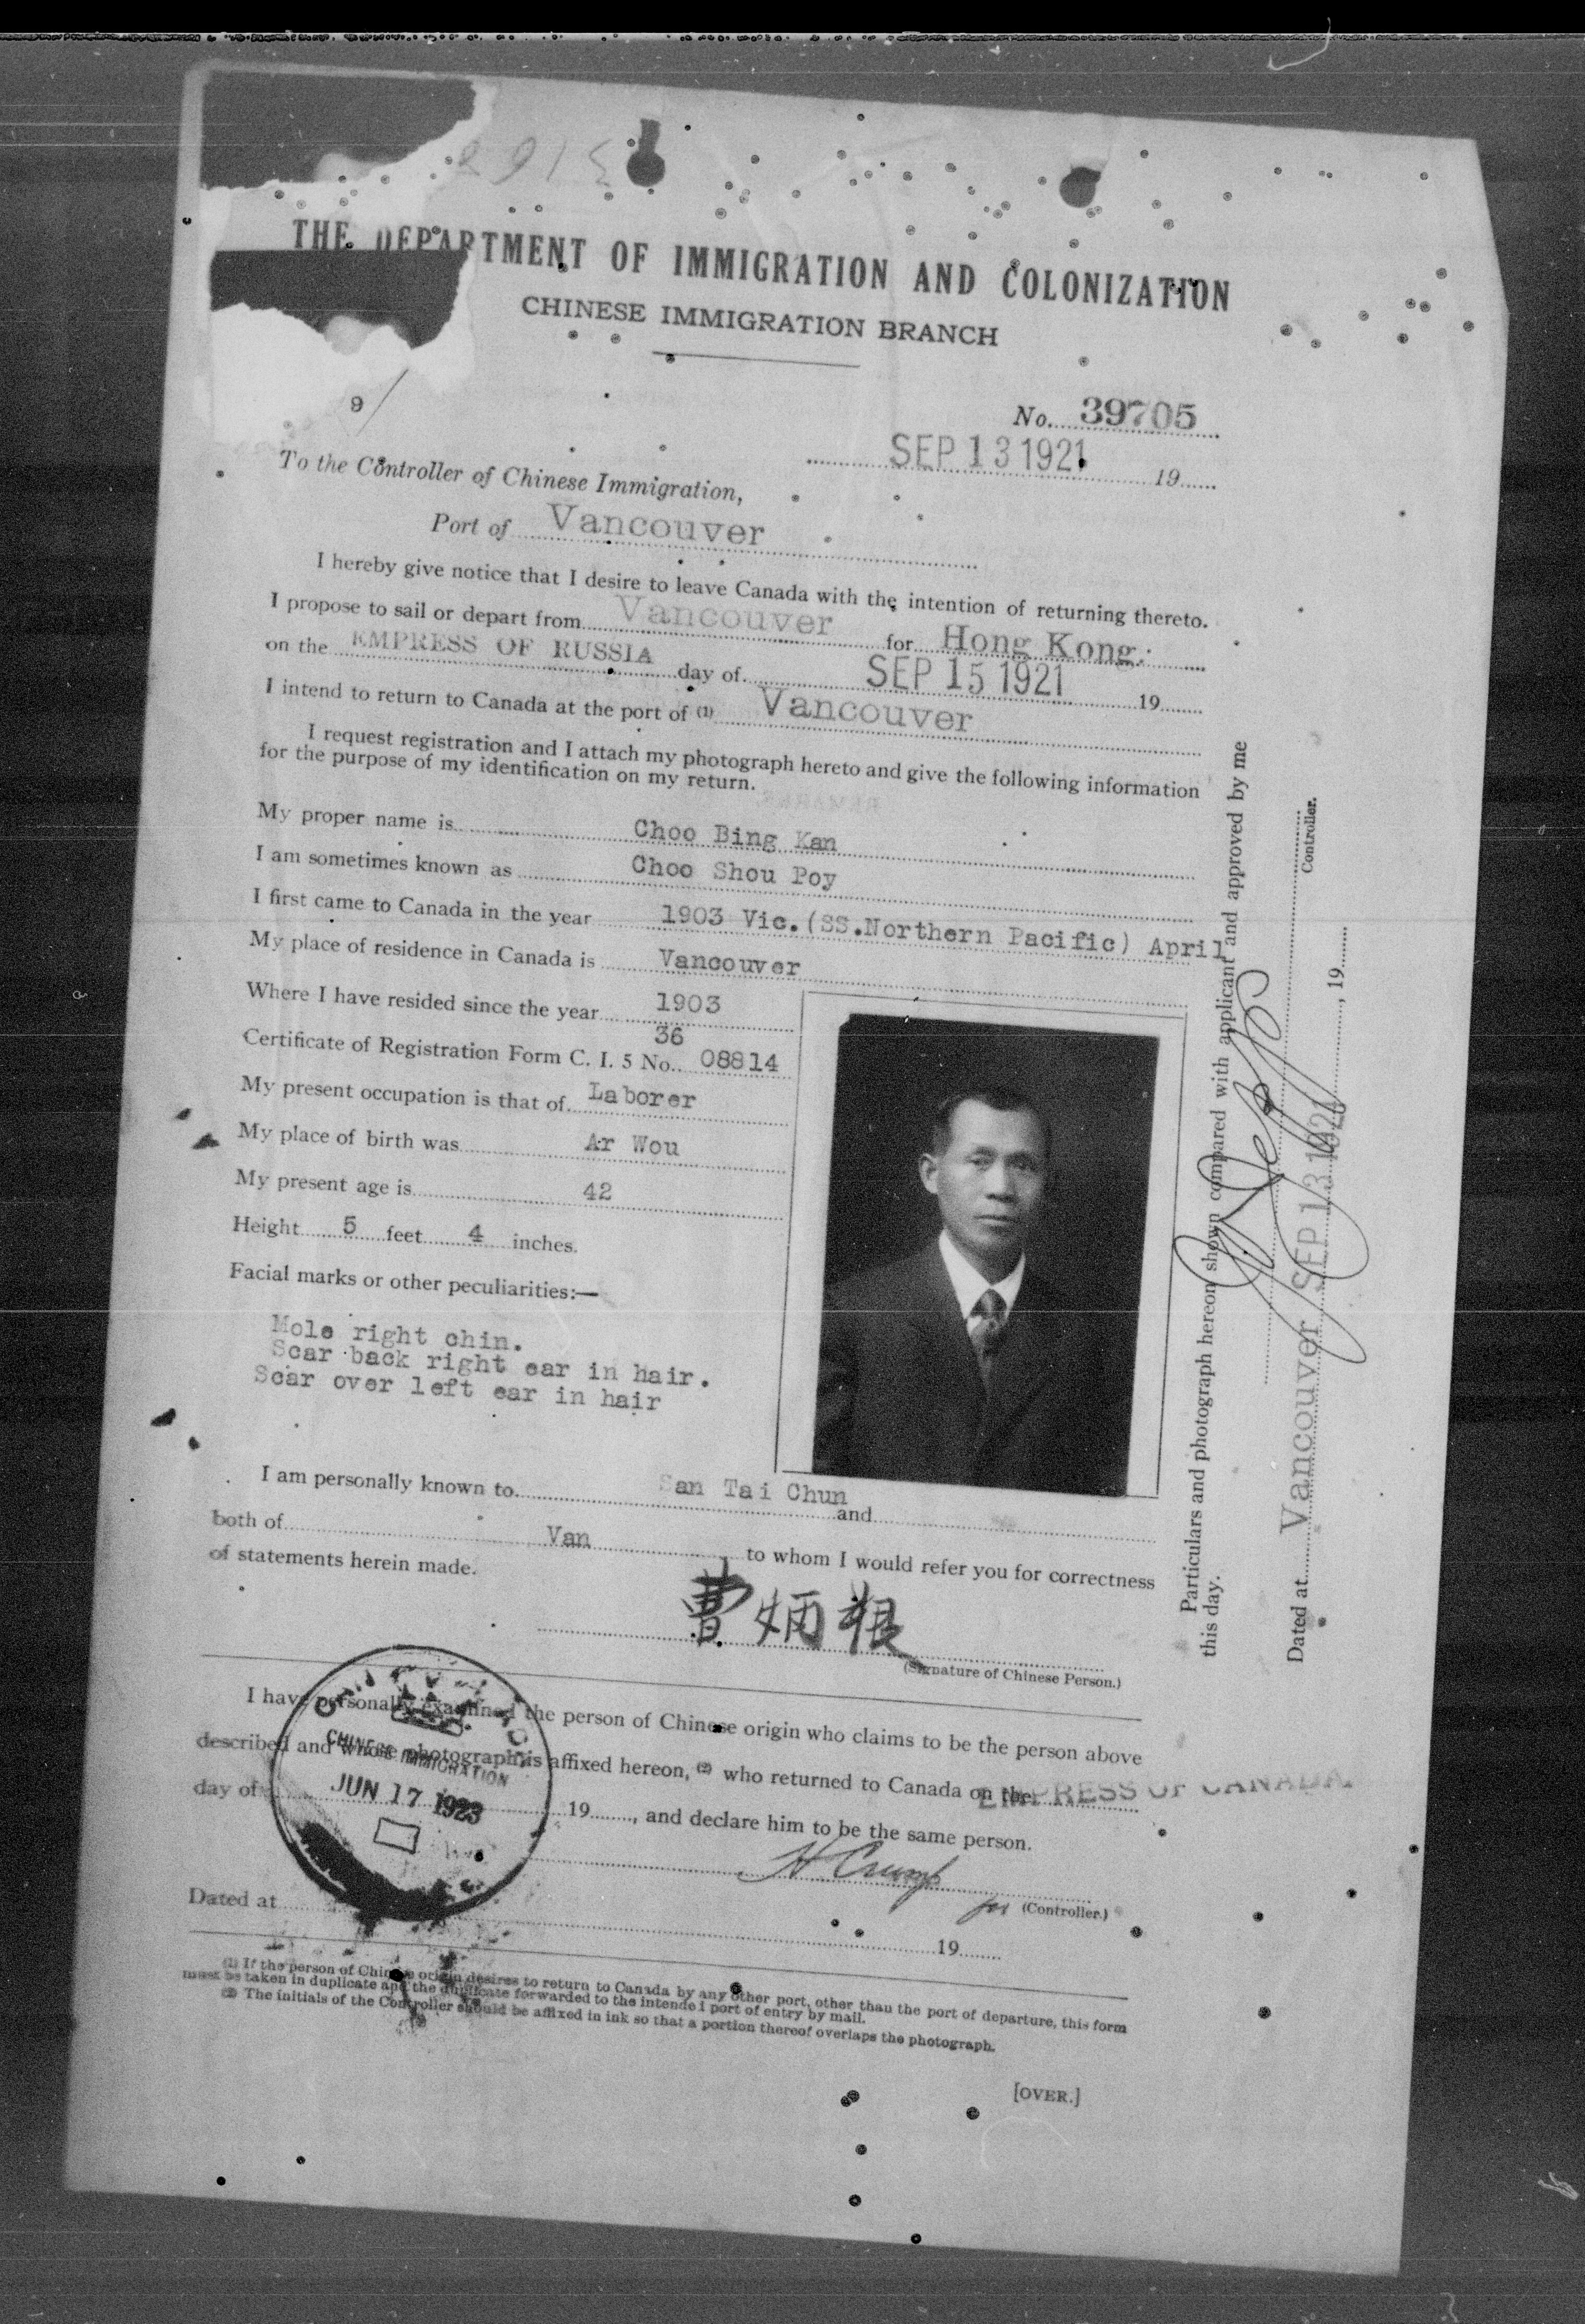 THE DEPARTMENT OF IMMIGRATION AND COLONIZATION
CHINESE IMMIGRATION BRANCH
9/
No. 39705
SEP 13 1921 19
To the Controller of Chinese Immigration,
Port of Vancouver
I hereby give notice that I desire to leave Canada with the intention of returning thereto.
I propose to sail or depart from Vancouver for Hong Kong.
on the EMPRESS OF RUSSIA day of SEP 15 1921 19
I intend to return to Canada at the port of (1) Vancouver
I request registration and I attach my photograph hereto and give the following information
for the purpose of my identification on my return.
My proper name is Choo Bing Kan
I am sometimes known as Choo Shou Poy
I first came to Canada in the year 1903 Vic.(SS.Northern Pacific) April
My place of residence in Canada is Vancouver
Where I have resided since the year 1903
36
Certificate of Registration Form C. I. 5 No. 08814
My present occupation is that of Laborer
My place of birth was Ar Wou
My present age is 42
Height 5 feet 4 inches.
Facial marks or other peculiarities:—
Mole right chin.
Scar back right ear in hair.
Scar over left ear in hair
I am personally known to San Tai Chun and
both of Van to whom I would refer you for correctness
of statements herein made.
曹炳根
(Signature of Chinese Person.)
Particulars and photograph hereon shown compared with applicant and approved by me
this day.
Controller.
Dated at Vancouver SEP 13 1921, 19
I have personally examined the person of Chinese origin who claims to be the person above
described and whose photograph is affixed hereon, (2) who returned to Canada on the EMPRESS OF CANADA
day of 19, and declare him to be the same person.
CHINESE IMMIGRATION
JUN 17 1923
H Crump
for (Controller.)
Dated at 19
(1) If the person of Chinese origin desires to return to Canada by any other port, other than the port of departure, this form
must be taken in duplicate and the duplicate forwarded to the intended port of entry by mail.
(2) The initials of the Controller should be affixed in ink so that a portion thereof overlaps the photograph.
[OVER.]